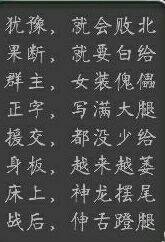 犹豫，就会败北
果断，就要白给
群主，女装傀儡
正字，写满大腿
援交，都没少给
身板，越来越萎
床上，神龙摆尾
战后，伸舌蹬腿